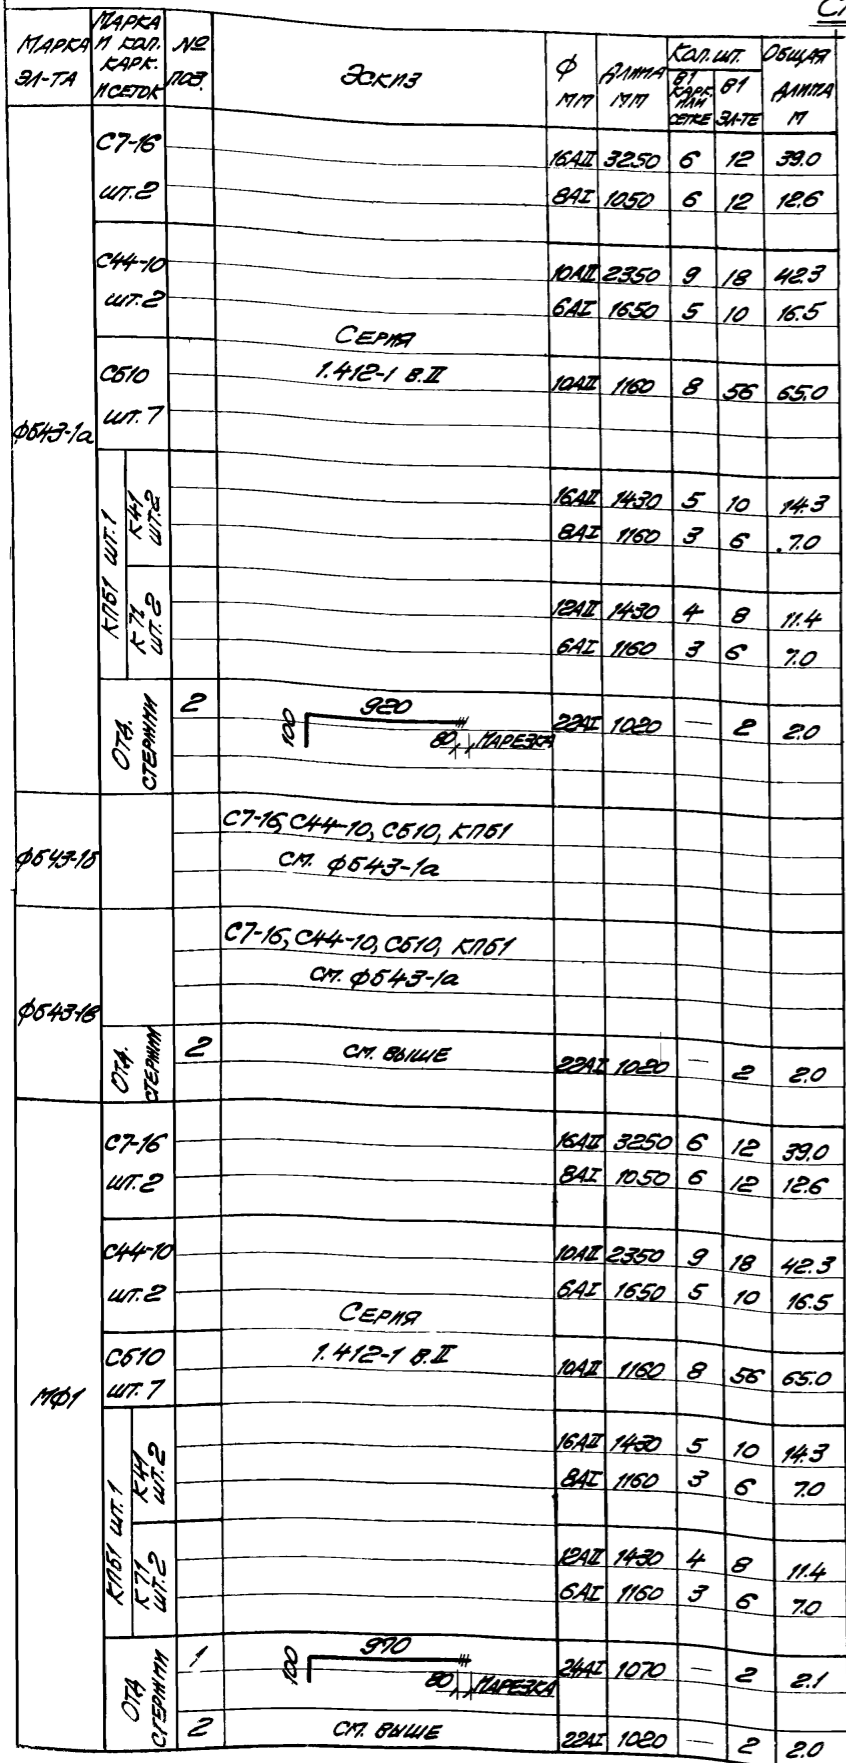 СП
МАРКА ЭЛ-ТА
МАРКА И КОЛ. КАРК. И СЕТОК
№ ПОЗ.
ЭСКИЗ
Ф ММ
ДЛИНА ММ
КОЛ. ШТ.
В 1 КАРК. ИЛИ СЕТКЕ
В 1 ЭЛ-ТЕ
ОБЩАЯ ДЛИНА М
ФБ43-1а
С7-16 шт.2
16АII 3250 6 12 39.0
8АI 1050 6 12 12.6
С44-10 шт.2
10АII 2350 9 18 42.3
6АI 1650 5 10 16.5
СЕРИЯ
1.412-1 В.II
СБ10 шт.7
10АII 1160 8 56 65.0
КПБ1 шт.1
К41 шт.2
16АII 1430 5 10 14.3
8АI 1160 3 6 7.0
К71 шт.2
12АII 1430 4 8 11.4
6АI 1160 3 6 7.0
ОТД. СТЕРЖНИ
2 100 920 80 НАРЕЗКА 22АI 1020 — 2 2.0
ФБ43-1б
С7-16, С44-10, СБ10, КПБ1
СМ. ФБ43-1а
ФБ43-1в
С7-16, С44-10, СБ10, КПБ1
СМ. ФБ43-1а
ОТД. СТЕРЖНИ
2 СМ. ВЫШЕ 22АI 1020 — 2 2.0
МФ1
С7-16 шт.2
16АII 3250 6 12 39.0
8АI 1050 6 12 12.6
С44-10 шт.2
10АII 2350 9 18 42.3
6АI 1650 5 10 16.5
СЕРИЯ
1.412-1 В.II
СБ10 шт.7
10АII 1160 8 56 65.0
КПБ1 шт.1
К41 шт.2
16АII 1430 5 10 14.3
8АI 1160 3 6 7.0
К71 шт.2
12АII 1430 4 8 11.4
6АI 1160 3 6 7.0
ОТД. СТЕРЖНИ
1 100 970 80 НАРЕЗКА 24АI 1070 — 2 2.1
2 СМ. ВЫШЕ 22АI 1020 — 2 2.0